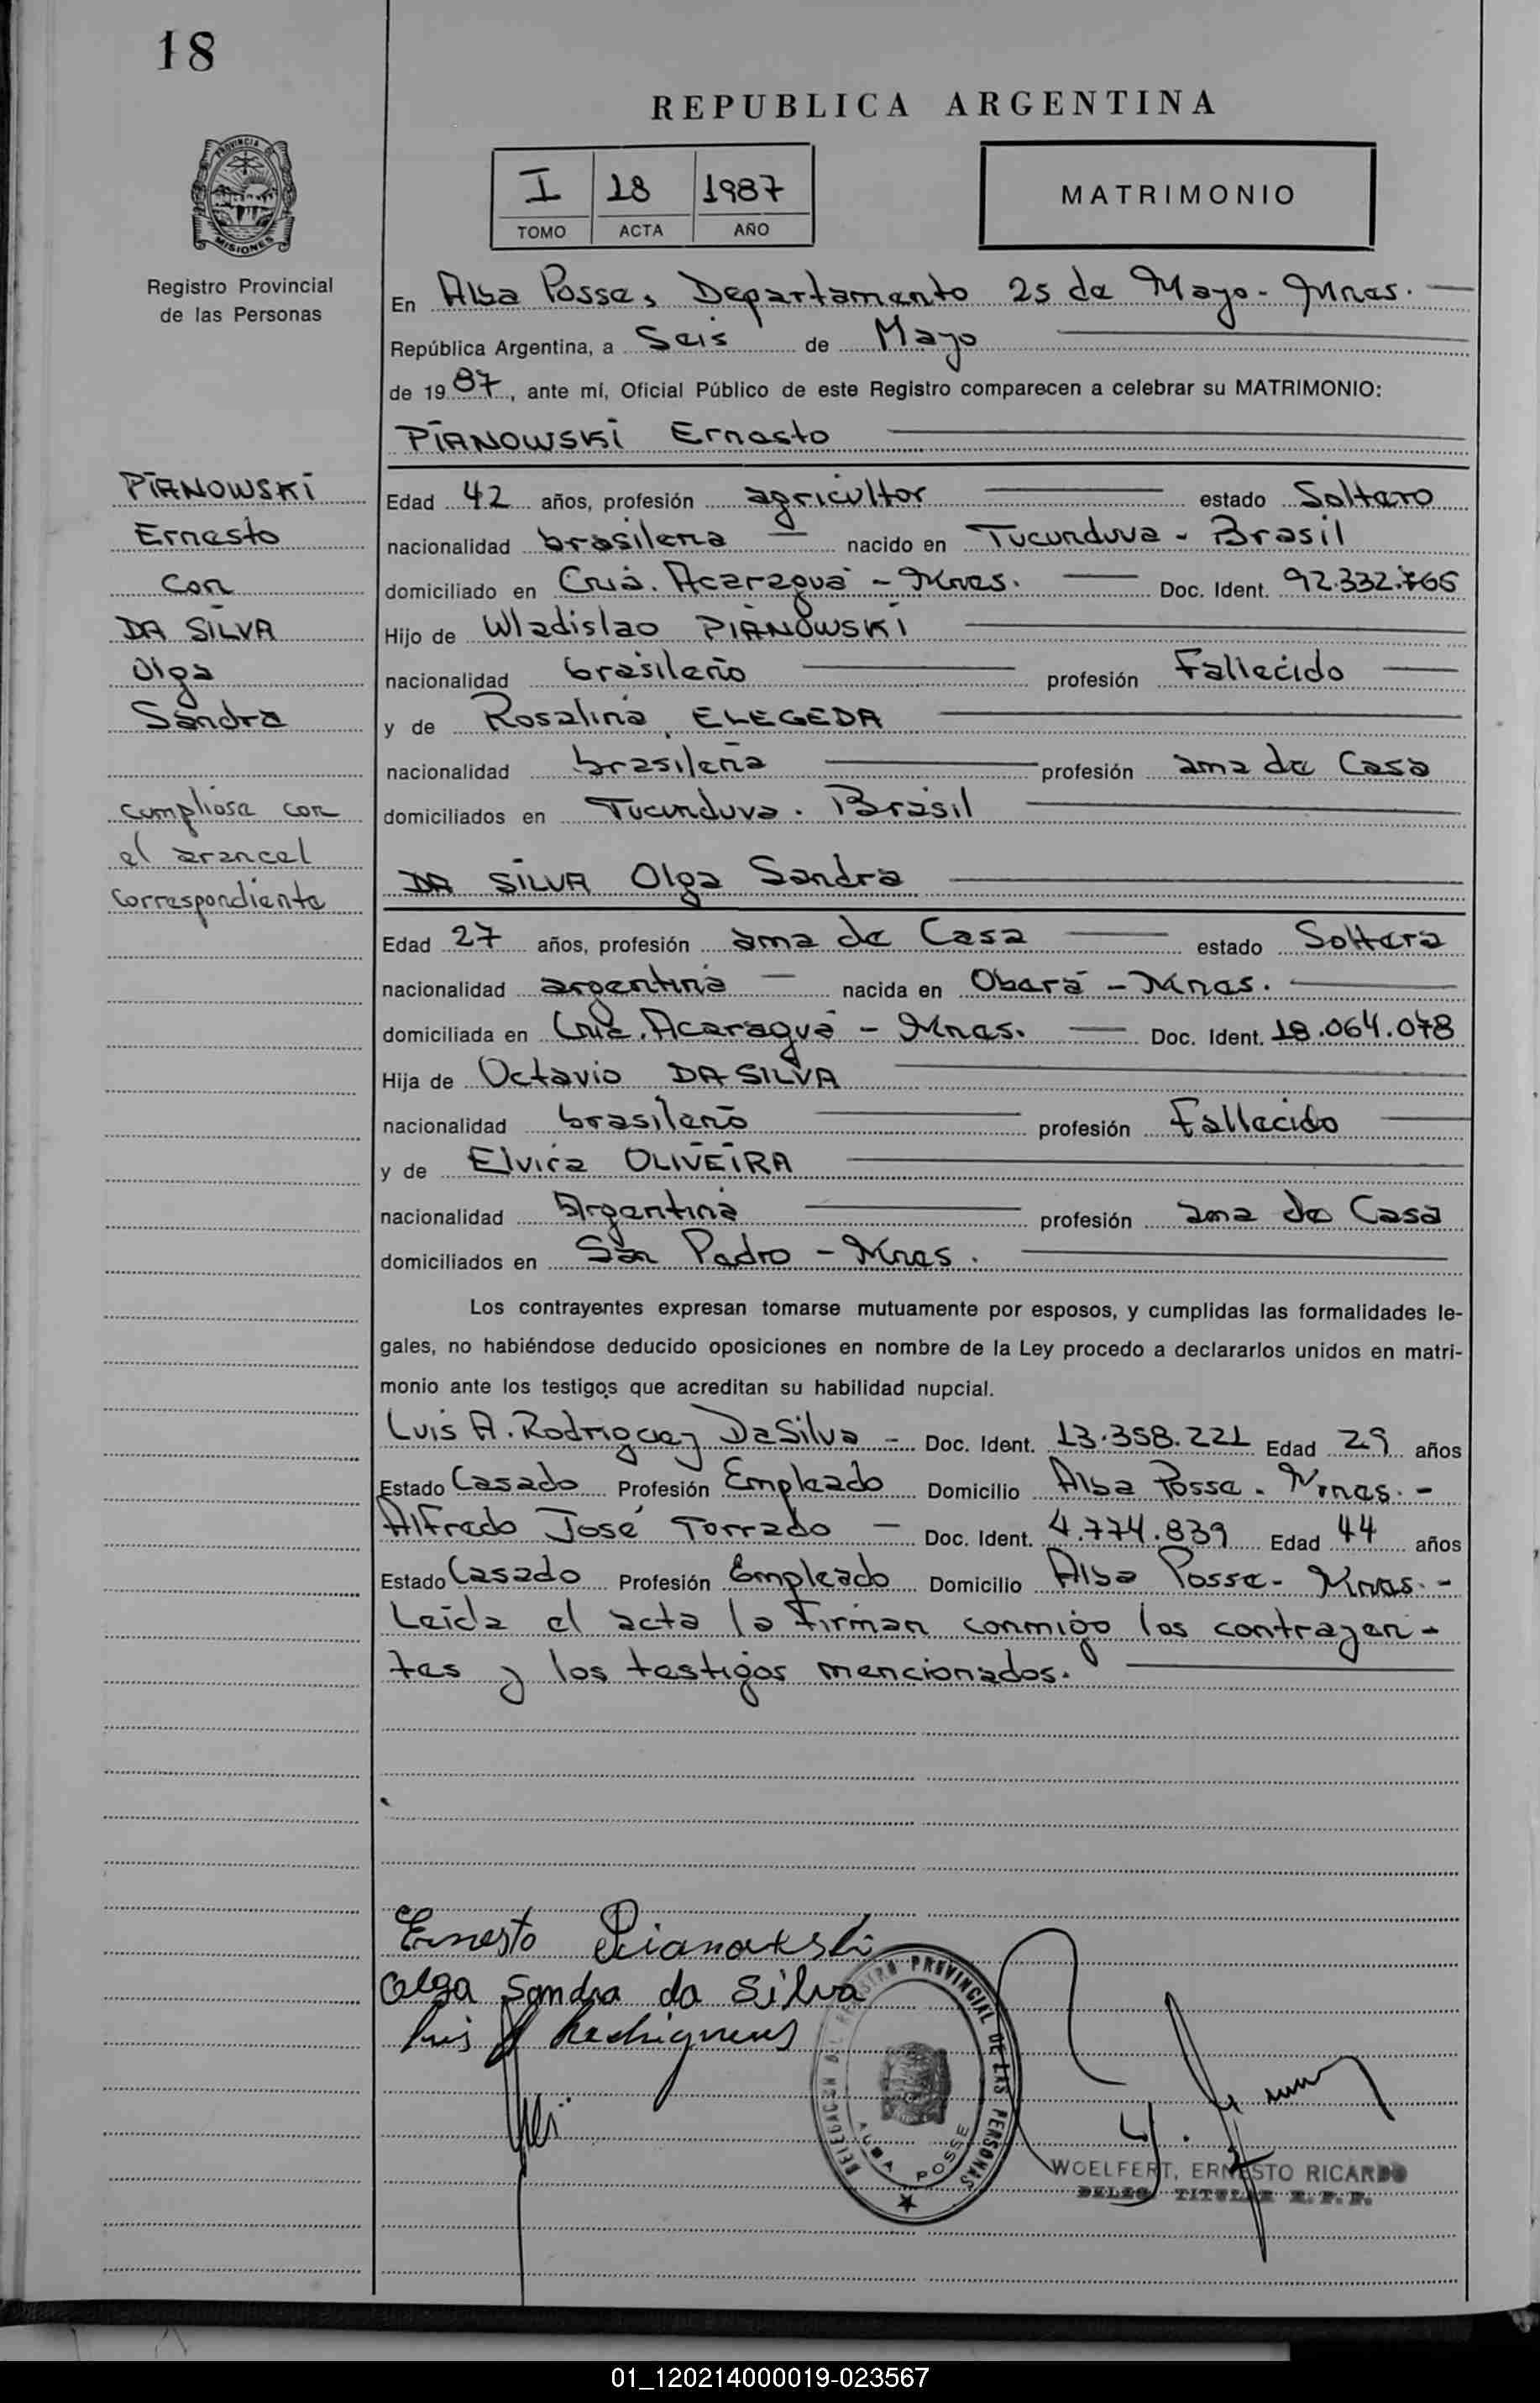 18
REPUBLICA ARGENTINA
PROVINCIA DE
MISIONES
I 18 1987
TOMO ACTA AÑO
MATRIMONIO
Registro Provincial
de las Personas
En Alba Posse, Departamento 25 de Mayo - Mnes.
República Argentina, a Seis de Mayo
de 1987, ante mí, Oficial Público de este Registro comparecen a celebrar su MATRIMONIO:
PIANOWSKI Ernesto
PIANOWSKI
Ernesto
con
DA SILVA
Olga
Sandra
cumpliose con
el arancel
correspondiente
Edad 42 años, profesión agricultor estado Soltero
nacionalidad brasilena nacido en Tucunduva - Brasil
domiciliado en Cnia. Acaragua - Mnes. Doc. Ident. 92.332.765
Hijo de Wladislao PIANOWSKI
nacionalidad brasileño profesión Fallecido
y de Rosalina ELEGEDA
nacionalidad brasileña profesión ama de Casa
domiciliados en Tucunduva. Brasil
DA SILVA Olga Sandra
Edad 27 años, profesión ama de Casa estado Soltera
nacionalidad argentina nacida en Oberá - Mnes.
domiciliada en Cnia. Acaragua - Mnes. Doc. Ident. 18.064.078
Hija de Octavio DA SILVA
nacionalidad brasileño profesión Fallecido
y de Elvira OLIVEIRA
nacionalidad Argentina profesión ama de Casa
domiciliados en San Pedro - Mnes.
Los contrayentes expresan tomarse mutuamente por esposos, y cumplidas las formalidades le-
gales, no habiéndose deducido oposiciones en nombre de la Ley procedo a declararlos unidos en matri-
monio ante los testigos que acreditan su habilidad nupcial.
Luis A. Rodriguez DaSilva - Doc. Ident. 13.358.221 Edad 29 años
Estado Casado Profesión Empleado Domicilio Alba Posse - Mnes. -
Alfredo José Torrado - Doc. Ident. 4.774.839 Edad 44 años
Estado Casado Profesión Empleado Domicilio Alba Posse - Mnes. -
Leida el acta la firman conmigo los contrayen-
tes y los testigos mencionados.
Ernesto Pianowski
Olga Sandra da Silva
Luis A Rodriguez
DELEGACION DEL REGISTRO PROVINCIAL DE LAS PERSONAS
ALBA POSSE
WOELFERT, ERNESTO RICARDO
DELEG. TITULAR R. P. P.
01_120214000019-023567